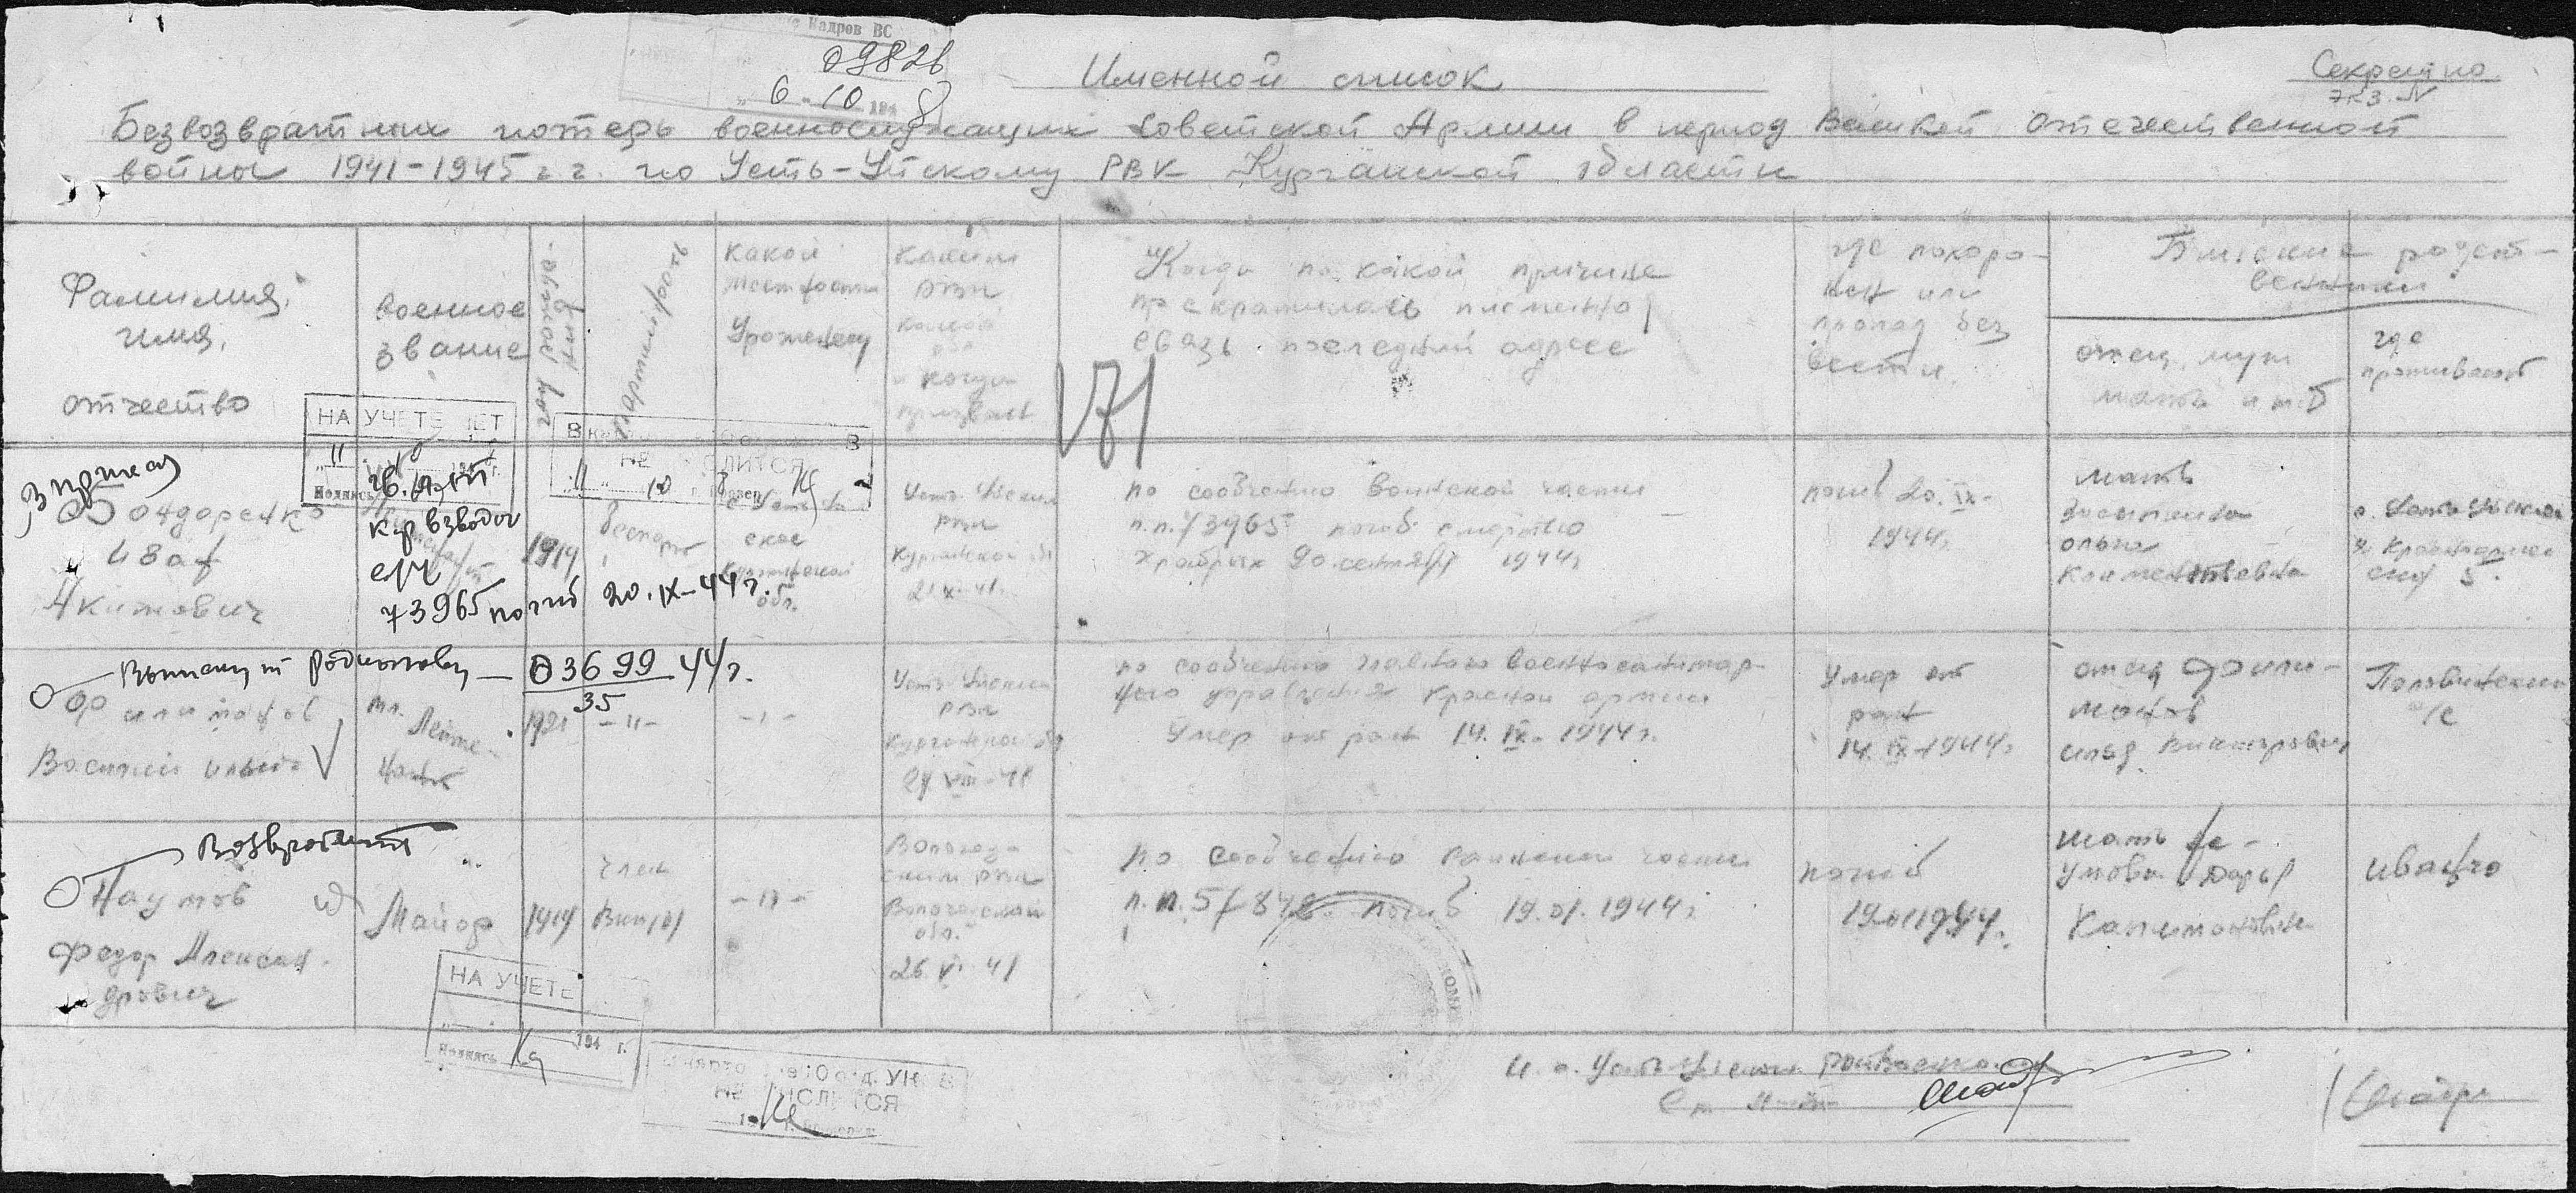 Кадров ВС
09826
6 10 194 8
Именной список
Секретно
экз. №
Безвозвратных потерь военнослужащих Советской Армии в период Великой Отечественной
войны 1941-1945 г.г. по Усть-Уйскому РВК Курганской области
Фамилия,
имя,
отчество
военное
звание
год рожд
партийность
какой
местности
Уроженец
Каким
РВК
какой
обл
и когда
призван
Когда по какой причине
прекратилась письменно
связь последний адрес
где похоро-
нен или
пропал без
вести
Ближние родст-
венники
отец, муж
мать и т.д
где
проживают
171
НА УЧЕТЕ НЕТ
11
194 г.
Подпись
НЕ ЧИСЛИТСЯ
11 10
Бондаренко
Иван
Акимович
гв. л-нт
к-р взвода
с/ч
73965 погиб 20.IX-44г.
1919
беспарт
Курганской
обл.
Усть-Уйским
РВК
Курганской обл
21.X-41.
по сообщению воинской части
п.п. 73965 погиб смертью
храбрых 20.сентября 1944г
погиб 20.IX-
1944г
мать
Ольга
Климентьевна
с. Усть-Уйское
ул. Красноармей
ская 5.
Выписан т Родионову — 03699 44г.
35
Филимонов
Василий Ильич
мл. Лейте-
нант
1921
-"-
-"-
Усть-Уйским
РВК
Курганской обл
24 VIII-41
по сообщению главного военно санитар-
ного управления Красной армии
Умер от ран 14.IX-1944г.
Умер от
ран
14.IX-1944г
отец Фили-
монов
Илья
Половинский
с/с
Возвратит
Наумов
Федор Алексан-
дрович
Майор
1919
член
ВКП(б)
-"-
Вологод
ским РВК
Вологодской
обл.
26.V. 41
по сообщению воинской части
п.п. 57848 погиб 19.01.1944г
погиб
19.01.1944г.
мать На-
умова Дарья
Капитоновна
Иванчо
НА УЧЕТЕ
194 г.
Подпись
НЕ ЧИСЛИТСЯ
И.о. Усть-Уйского райвоенкома
Ст. л-нт